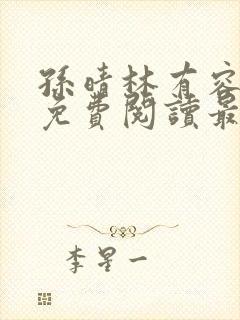 孫晴林有容
免費閱讀最
李星一